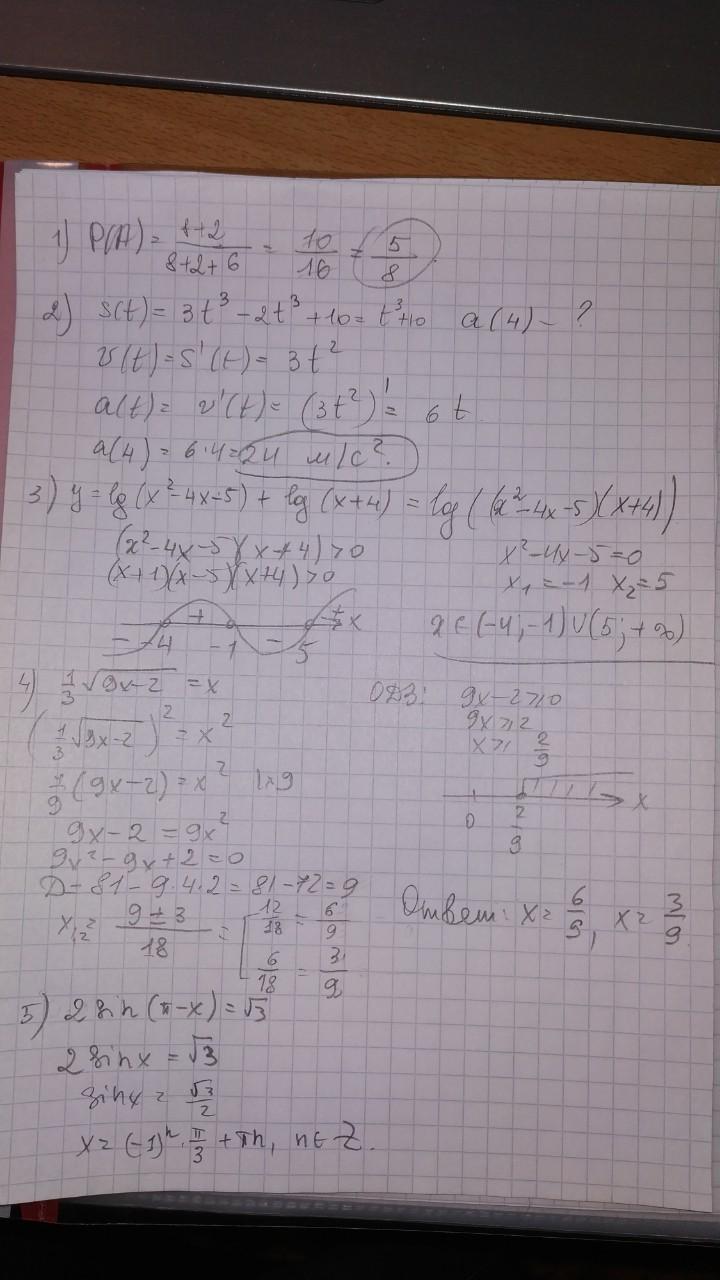 1) P(A) = 8+2 / 8+2+6 = 10/16 = 5/8
2) S(t) = 3t³ - 2t³ + 10 = t³+10 a(4) - ?
v(t) = S'(t) = 3t²
a(t) = v'(t) = (3t²)' = 6t
a(4) = 6·4 = 24 м/с².
3) y = lg(x²-4x-5) + lg(x+4) = lg((x²-4x-5)(x+4))
(x²-4x-5)(x+4)>0 x²-4x-5=0
(x+1)(x-5)(x+4)>0 x₁=-1 x₂=5
- -4 + -1 - 5 + x x ∈ (-4; -1) ∪ (5; +∞)
4) 1/3 √9x-2 = x ОДЗ: 9x-2≥0
(1/3 √9x-2)² = x² 9x≥2
x≥ 2/9
1/9 (9x-2) = x² |×9 0 2/9 x
9x-2 = 9x²
9x²-9x+2=0
D = 81-9·4·2 = 81-72 = 9
x₁,₂ = 9±3 / 18 = [ 12/18 = 6/9 Ответ: x = 6/9, x = 3/9
6/18 = 3/9
5) 2 sin(π-x) = √3
2 sin x = √3
sin x = √3/2
x = (-1)ⁿ · π/3 + πn, n∈Z.